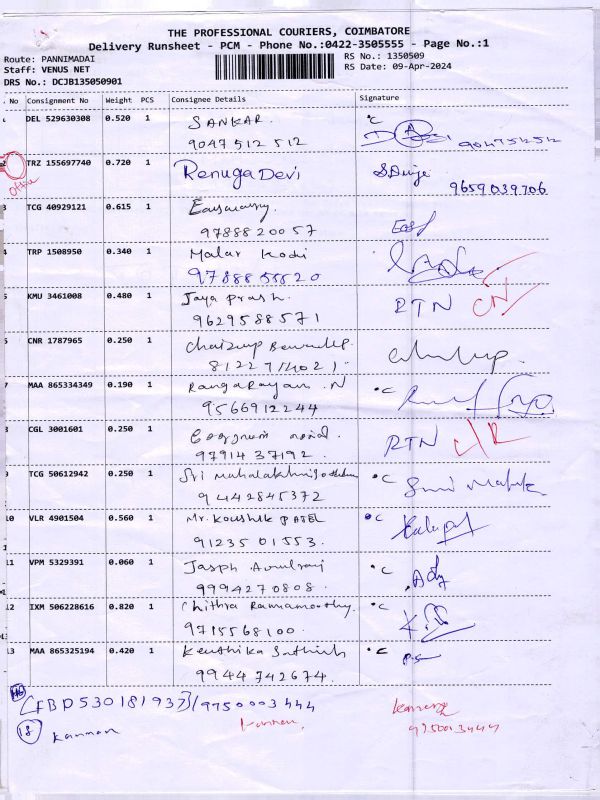 THE PROFESSIONAL COURIERS, COIMBATORE
Delivery Runsheet - PCM - Phone No.:0422-3505555 - Page No.:1
Route: PANNIMADAI
Staff: VENUS NET
DRS No.: DCJB135050901
RS No.: 1350509
RS Date: 09-Apr-2024
No Consignment No Weight PCS Consignee Details Signature
DEL 529630308 0.520 1 SANKAR. °C
9047512512
2 TRZ 155697740 0.720 1 Renuga Devi
Office 9659039706
3 TCG 40929121 0.615 1
9788820057
4 TRP 1508950 0.340 1 Malar Kodi
9788855520
5 KMU 3461008 0.480 1 Jaya prash. RTN CN
9629588571
6 CNR 1787965 0.250 1
7 MAA 865334349 0.190 1 Rangarayan. N °C
9566912244
8 CGL 3001601 0.250 1 RTN C/R
9791437192.
9 TCG 50612942 0.250 1 Sri °C
9442845372
10 VLR 4901504 0.560 1 Mr. Koushik PATEL °C
9123501553.
11 VPM 5329391 0.060 1 Jasph °C
9994270808.
12 IXM 506228616 0.820 1 Chithra Ramamoorthy. °C
9715568100.
13 MAA 865325194 0.420 1 Keuthika Sathish °C
9944742674.
(FBD530181937)/9750003444
18. Kannan Kannan